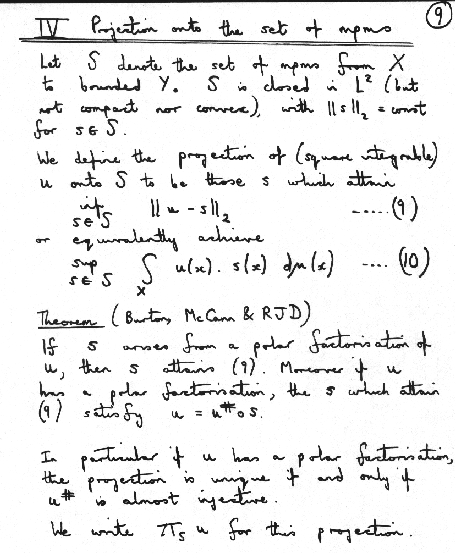 9
IV Projection onto the set of mpms
Let S denote the set of mpms from X
to bounded Y. S is closed in L² (but
not compact nor convex), with ‖s‖₂ = const
for s ∈ S.
We define the projection of (square integrable)
u onto S to be those s which attain
inf s∈S ‖u - s‖₂ .....(9)
or equivalently achieve
sup s∈S ∫X u(x). s(x) dμ(x) .... (10)
Theorem (Burton, McCann & RJD)
If s arises from a polar factorisation of
u, then s attains (9). Moreover if u
has a polar factorisation, the s which attain
(9) satisfy u = u# ∘ s.
In particular if u has a polar factorisation,
the projection is unique if and only if
u# is almost injective.
We write πS u for this projection.